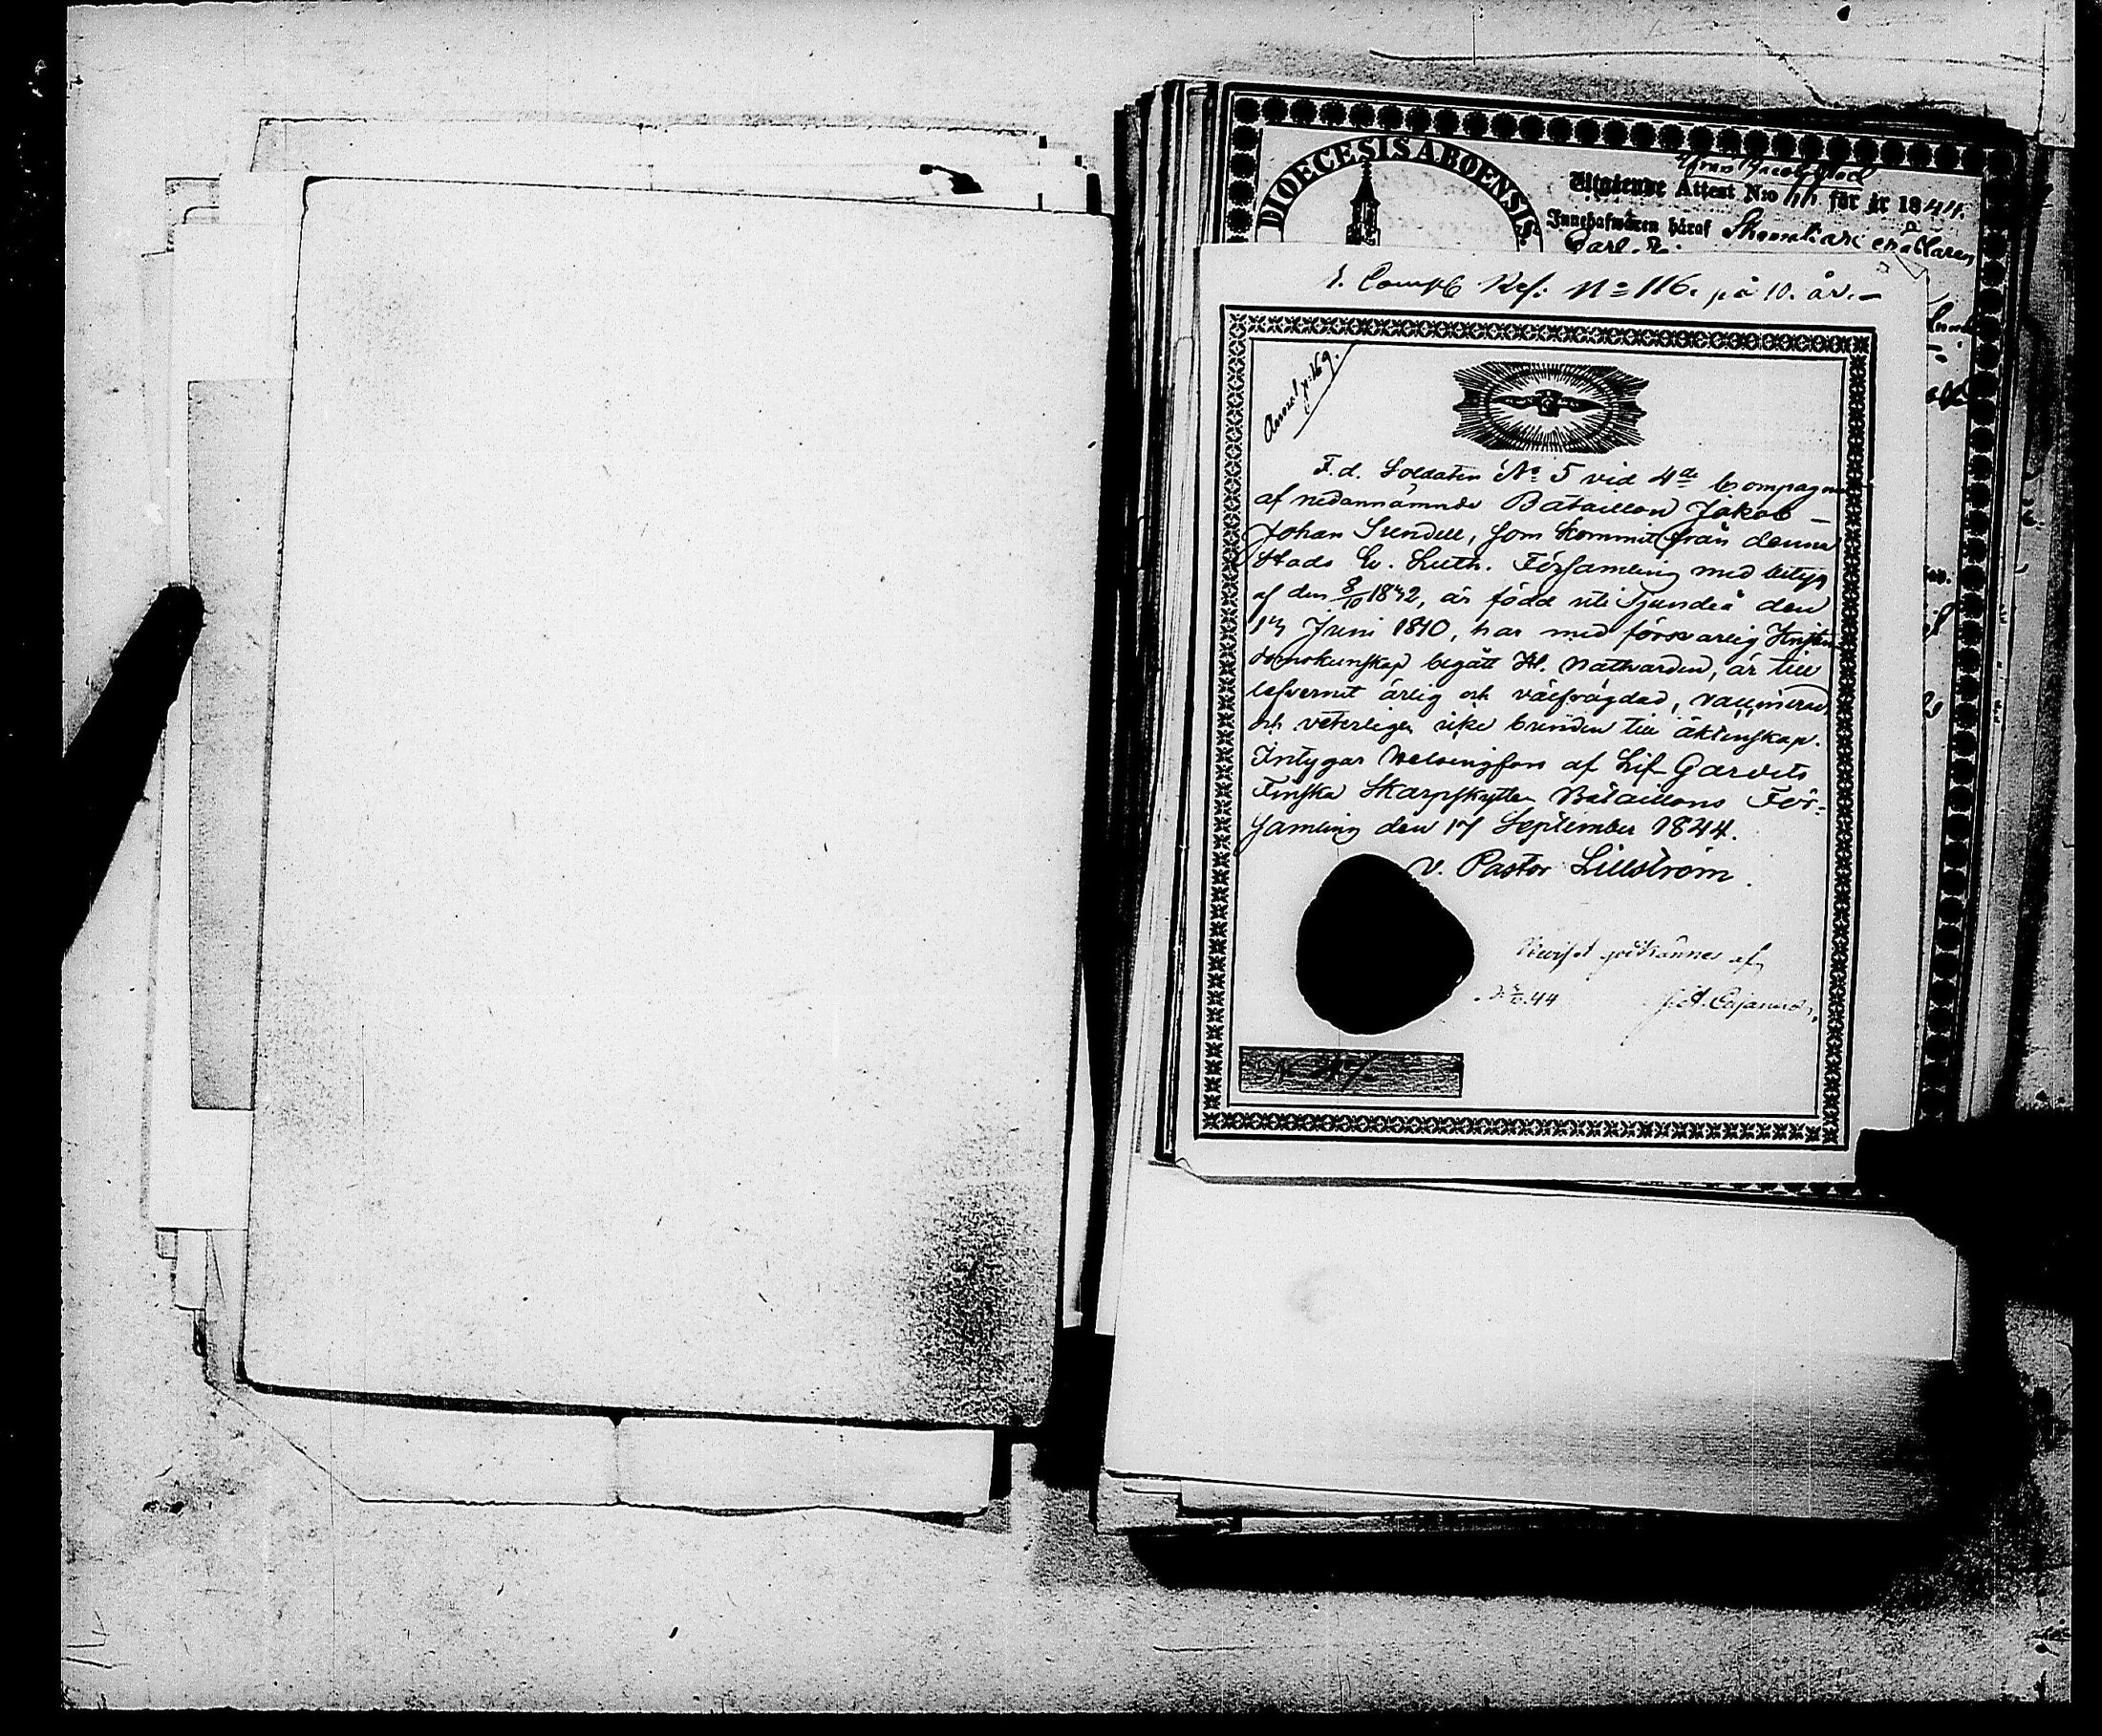 DIOECESIS ABOENSIS.
Utgående Attest N:o för år 1844.
Innehafwaren häraf
Carl
1. Comp. Res: No 116. på 10. år.
F. d. Soldaten No 5 vid 4de Compagni
af nedannämnde Bataillon Jakob
Johan Sundell, som kommit från denna
Stads Ev. Luth. Församling med betyg
af den 8/10 1842, är född uti Sjundeå den
Juni 1810, har med försvarlig Kristen
domskunskap begått H. Nattvarden, är till
lefvernet ärlig och välfrägdad, vaccinerad,
och veterligen icke bunden till äktenskap.
Intygar Helsingfors af Lif Gardets
Finska Skarpskytte Bataillons För-
samling den 17 September 1844.
v. Pastor Lillström.
godkännes af
44 Cajanus